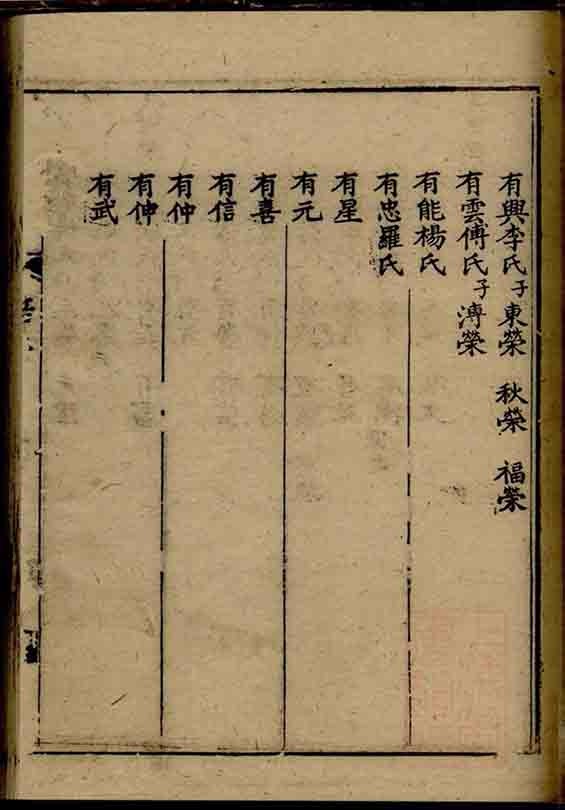 有興李氏子東榮 秋榮 福榮
有雲傅氏子溥榮
有能楊氏
有忠羅氏
有星
有元
有喜
有信
有仲
有伸
有武